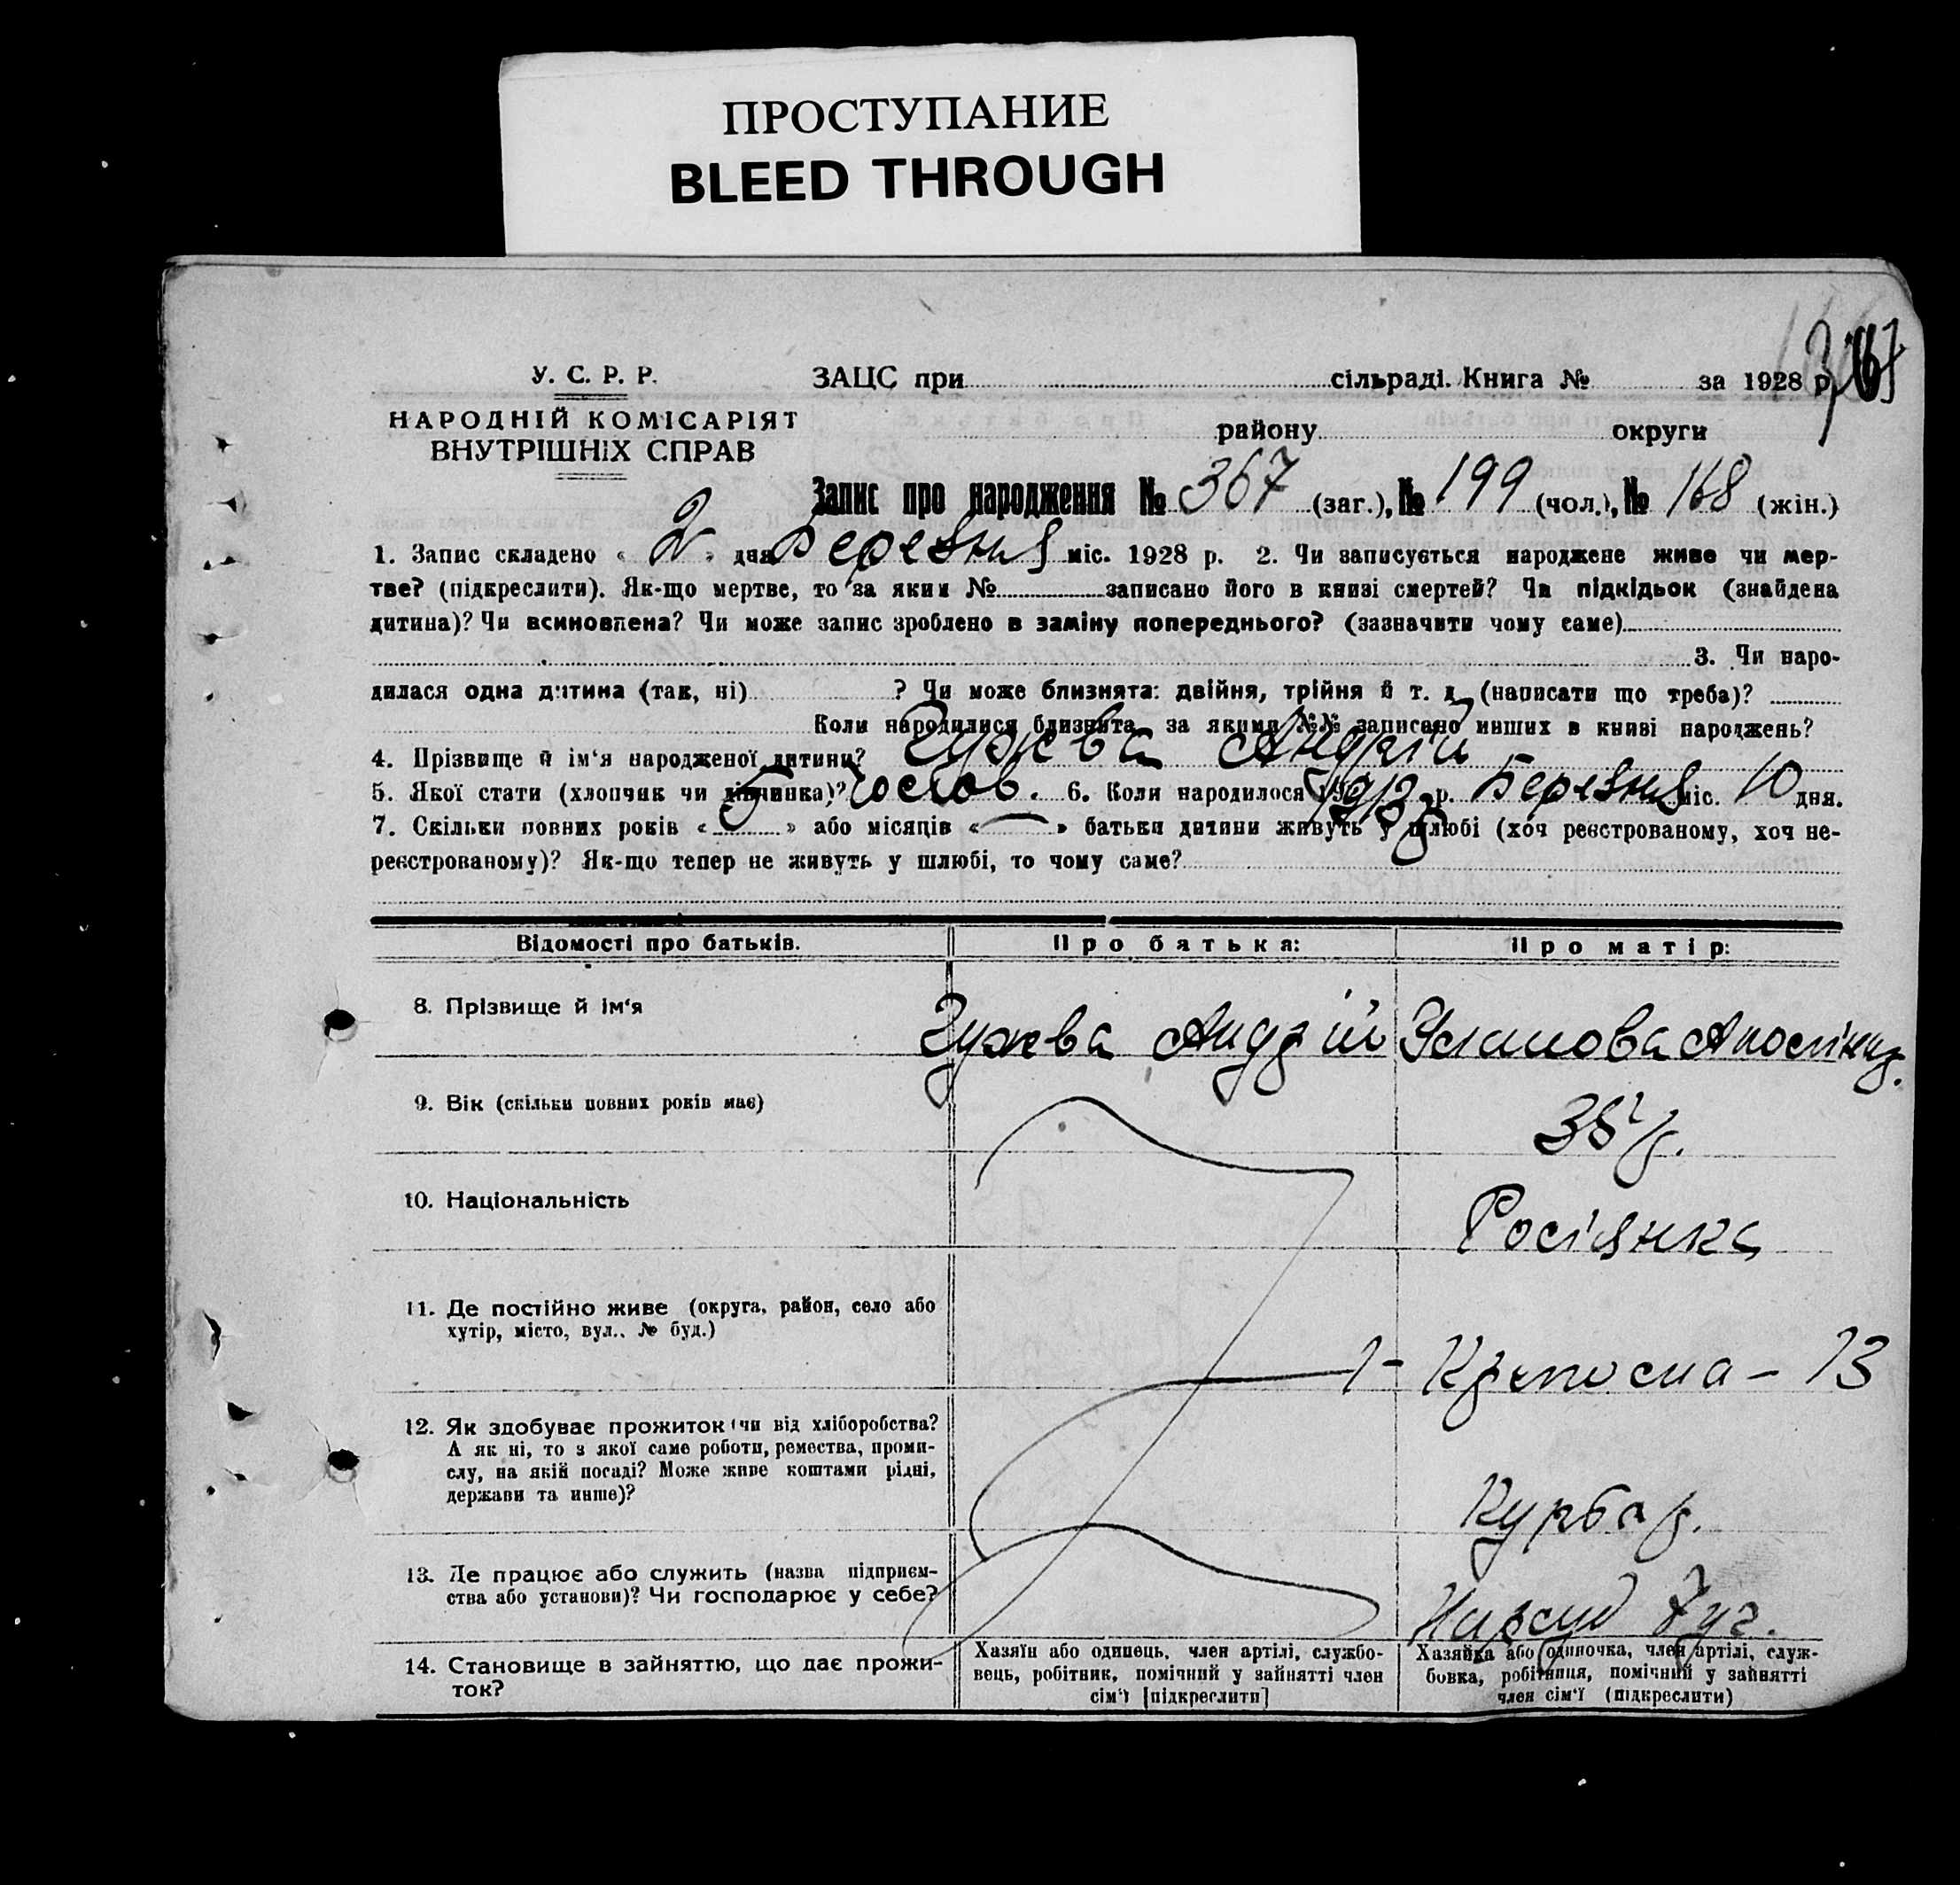 ПРОСТУПАНИЕ
BLEED THROUGH
У. С. Р. Р.
НАРОДНІЙ КОМІСАРІЯТ
ВНУТРІШНІХ СПРАВ
ЗАЦС при сільраді. Книга № за 1928 р.
району округи
Запис про народження № 367 (заг.), № 199 (чол.), № 168 (жін.)
1. Запис складено « 2 » дня Березня міс. 1928 р. 2. Чи записується народжене живе чи мер-
тве? (підкреслити). Як-що мертве, то за яким № записано його в книзі смертей? Чи підкідьок (знайдена
дитина)? Чи всиновлена? Чи може запис зроблено в заміну попереднього? (зазначити чому саме)
3. Чи наро-
дилася одна дитина (так, ні) ? Чи може близнята: двійня, трійня й т. д. (написати що треба)?
Коли народилися близнята, за якими №№ записано инших в книзі народжень?
4. Прізвище й ім‘я народженої дитини? Гужва Андрій
5. Якої стати (хлопчик чи дівчинка)? Чолов. 6. Коли народилося р. Березня міс. 10 дня.
7. Скільки повних років « » або місяців « — » батьки дитини живуть у шлюбі (хоч реєстрованому, хоч не-
реєстрованому)? Як-що тепер не живуть у шлюбі, то чому саме?
Відомості про батьків.
Про батька:
Про матір:
8. Прізвище й ім‘я
Гужва Андрій
9. Вік (скільки повних років має)
38 р.
10. Національність
Росіянка
11. Де постійно живе (округа, район, село або
хутір, місто, вул., № буд.)
13
12. Як здобуває прожиток (чи від хліборобства?
А як ні, то з якої саме роботи, ремества, проми-
слу, на якій посаді? Може живе коштами рідні,
держави та инше)?
13. Де працює або служить (назва підприєм-
ства або установи)? Чи господарює у себе?
14. Становище в зайняттю, що дає прожи-
ток?
Хазяїн або одинець, член артілі, службо-
вець, робітник, помічний у зайнятті член
сім‘ї [підкреслити]
Хазяйка або одиночка, член артілі, служ-
бовка, робітниця, помічний у зайнятті
член сім‘ї (підкреслити)